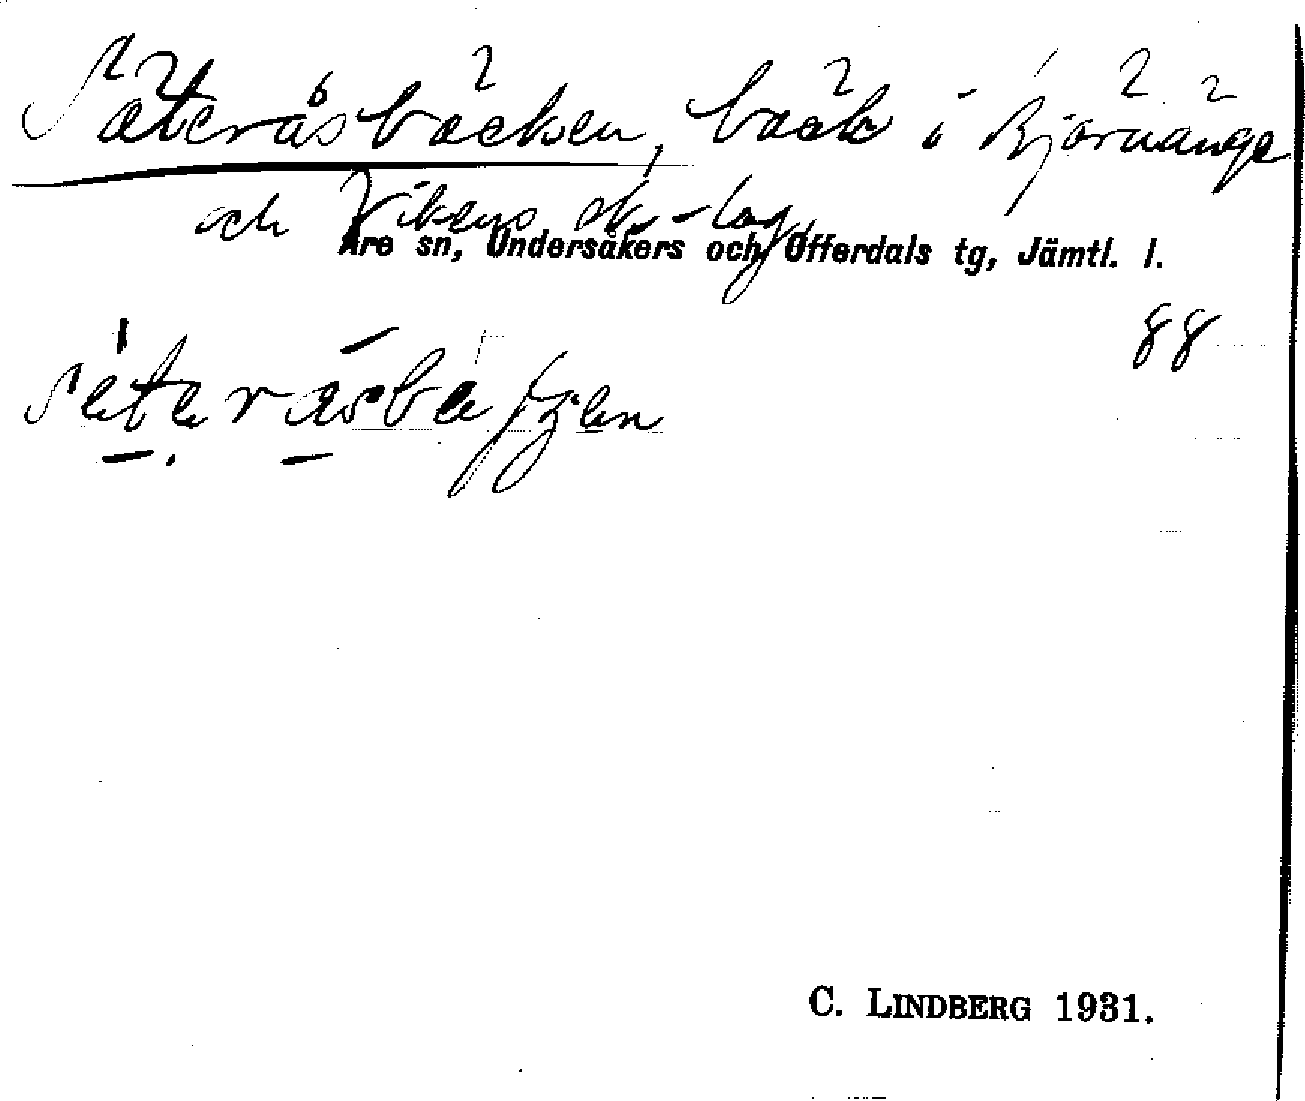 Säteråsbäcken, bäck i Björnänge
och Vikens sk.-lag
Åre sn, Undersåkers och Offerdals tg, Jämtl. l.
88
C. LINDBERG 1931.